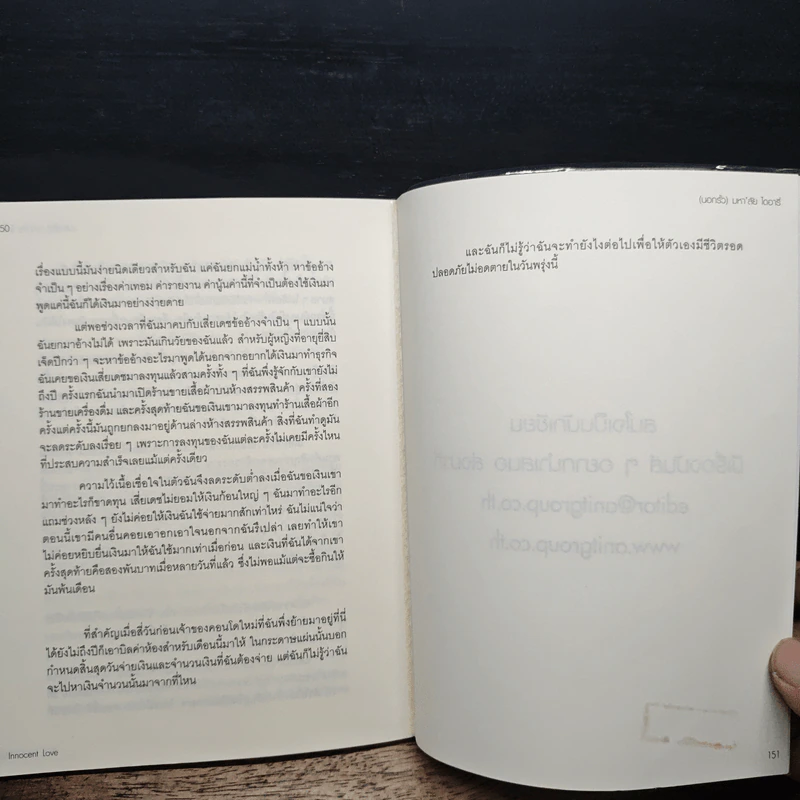 50
เรื่องแบบนี้มันง่ายนิดเดียวสำหรับฉัน แค่ฉันยกแม่น้ำทั้งห้า หาข้ออ้าง
จำเป็น ๆ อย่างเรื่องค่าเทอม ค่ารายงาน ค่านู้นค่านี้ที่จำเป็นต้องใช้เงินมา
พูดแค่นี้ฉันก็ได้เงินมาอย่างง่ายดาย
แต่พอช่วงเวลาที่ฉันมาคบกับเสี่ยเดชข้ออ้างจำเป็น ๆ แบบนั้น
ฉันยกมาอ้างไม่ได้ เพราะมันเกินวัยของฉันแล้ว สำหรับผู้หญิงที่อายุยี่สิบ
เจ็ดปีกว่า ๆ จะหาข้ออ้างอะไรมาพูดได้นอกจากอยากได้เงินมาทำธุรกิจ
ฉันเคยขอเงินเสี่ยเดชมาลงทุนแล้วสามครั้งทั้ง ๆ ที่ฉันพึ่งรู้จักกับเขายังไม่
ถึงปี ครั้งแรกฉันนำมาเปิดร้านขายเสื้อผ้าบนห้างสรรพสินค้า ครั้งที่สอง
ร้านขายเครื่องดื่ม และครั้งสุดท้ายฉันขอเงินเขามาลงทุนทำร้านเสื้อผ้าอีก
ครั้งแต่ครั้งนี้มันถูกยกลงมาอยู่ด้านล่างห้างสรรพสินค้า สิ่งที่ฉันทำดูมัน
จะลดระดับลงเรื่อย ๆ เพราะการลงทุนของฉันแต่ละครั้งไม่เคยมีครั้งไหน
ที่ประสบความสำเร็จเลยแม้แต่ครั้งเดียว
ความไว้เนื้อเชื่อใจในตัวฉันจึงลดระดับต่ำลงเมื่อฉันขอเงินเขา
มาทำอะไรก็ขาดทุน เสี่ยเดชไม่ยอมให้เงินก้อนใหญ่ ๆ ฉันมาทำอะไรอีก
แถมช่วงหลัง ๆ ยังไม่ค่อยให้เงินฉันใช้จ่ายมากสักเท่าไหร่ ฉันไม่แน่ใจว่า
ตอนนี้เขามีคนอื่นคอยเอาอกเอาใจนอกจากฉันรึเปล่า เลยทำให้เขา
ไม่ค่อยหยิบยื่นเงินมาให้ฉันใช้มากเท่าเมื่อก่อน และเงินที่ฉันได้จากเขา
ครั้งสุดท้ายคือสองพันบาทเมื่อหลายวันที่แล้ว ซึ่งไม่พอแม้แต่จะซื้อกินให้
มันพ้นเดือน
ที่สำคัญเมื่อสี่วันก่อนเจ้าของคอนโดใหม่ที่ฉันพึ่งย้ายมาอยู่ที่นี่
ได้ยังไม่ถึงปีก็เอาบิลค่าห้องสำหรับเดือนนี้มาให้ ในกระดาษแผ่นนั้นบอก
กำหนดสิ้นสุดวันจ่ายเงินและจำนวนเงินที่ฉันต้องจ่าย แต่ฉันก็ไม่รู้ว่าฉัน
จะไปหาเงินจำนวนนั้นมาจากที่ไหน
Innocent Love
(นอกรั้ว) มหา'ลัย ไดอารี่
และฉันก็ไม่รู้ว่าฉันจะทำยังไงต่อไปเพื่อให้ตัวเองมีชีวิตรอด
ปลอดภัยไม่อดตายในวันพรุ่งนี้
editor@anitgroup.co.th
www.anitgroup.co.th
151